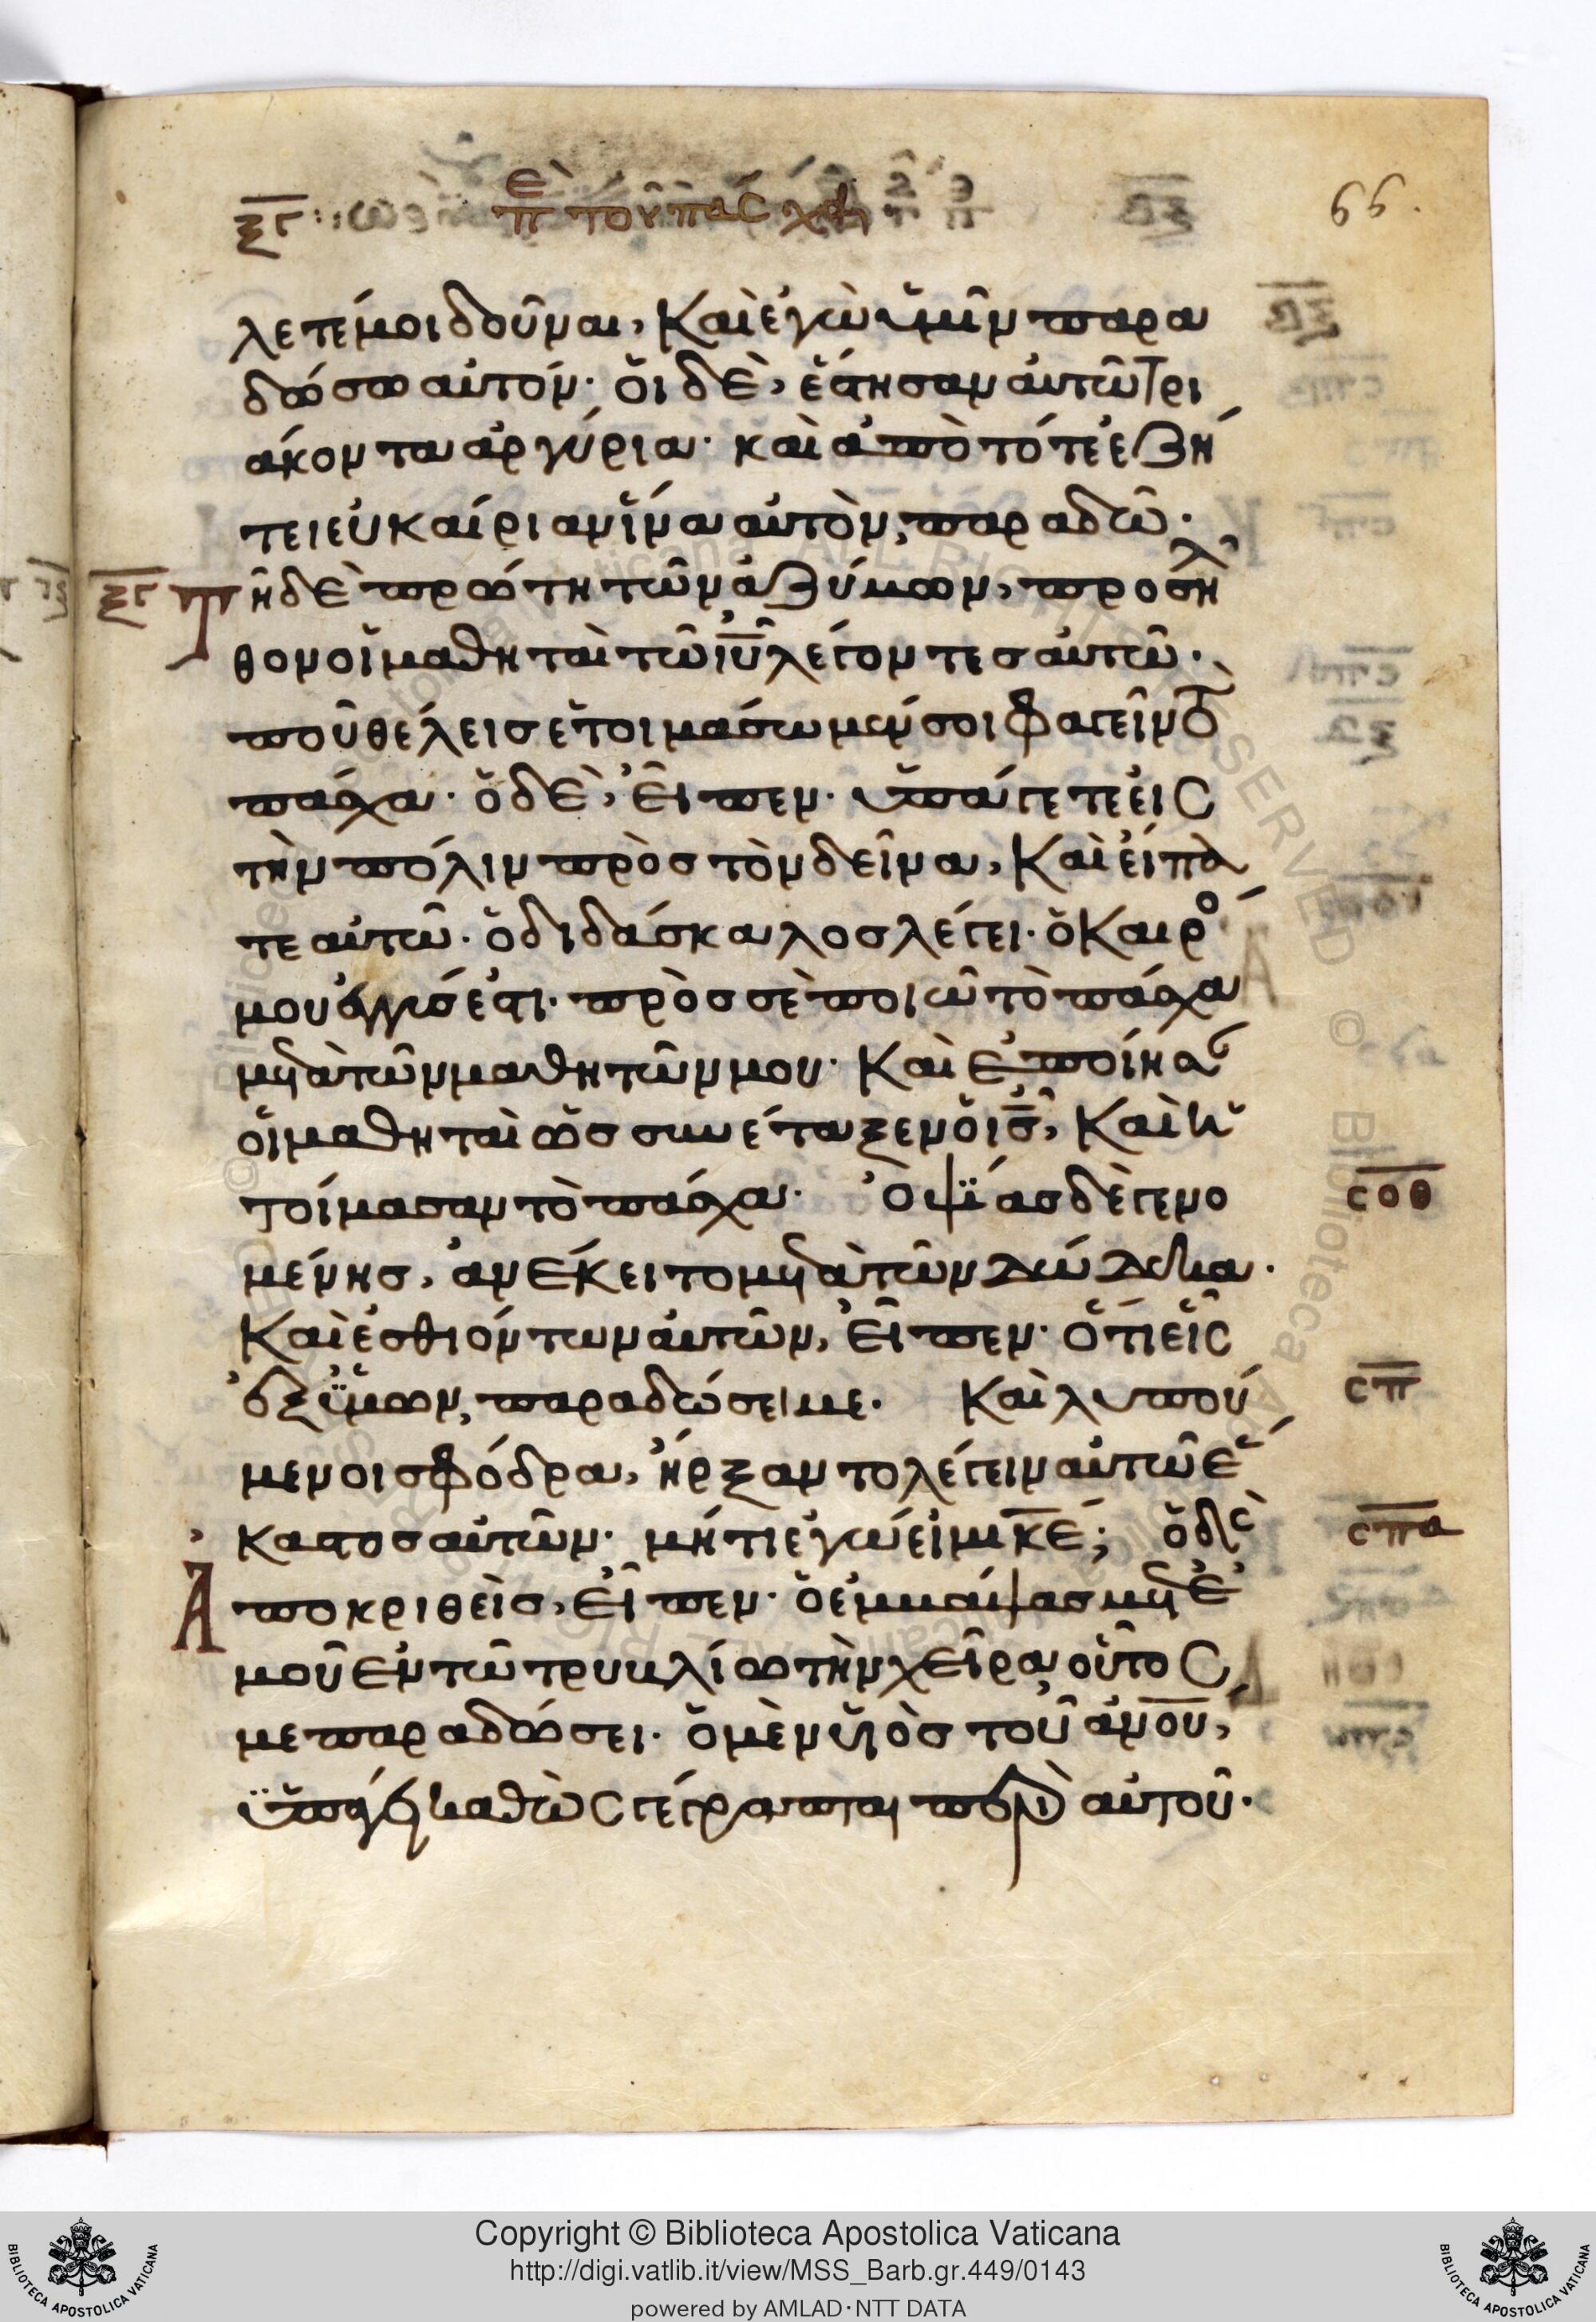 ξγ επὶ τοῦ πάσχα
66.
λετέ μοι δοῦναι, καὶ ἐγὼ ὑμῖν παρα
δώσω αὐτόν· ὁι δὲ, ἔστησαν αὐτῶ τρι
άκοντα ἀργύρια· καὶ ἀπὸ τότε ἐζή
τει ἐυκαίριαν ἵνα αὐτὸν, παραδῶ·
ξγ Τῆ δὲ πρώτη τῶν ἀζύμων, προσῆλ
θον οἱ μαθηταὶ τῶ ιῦ λέγοντεσ αὐτῶ·
ποῦ θέλεισ ἑτοιμάσωμέν σοι φαγεῖν τὸ
πάσχα· ὁ δὲ, εἶπεν· ὑπάγετε εἰς
τὴν πόλιν πρὸσ τὸν δεῖνα, καὶ εἴπα
τε αὐτῶ· ὁ διδάσκαλοσ λέγει· ὁ καιρό
μου ἐγγύσ ἐστι· πρὸσ σὲ ποιῶ τὸ πάσχα
μετὰ τῶν μαθητῶν μου· καὶ ἐποίησ
οἱ μαθηταὶ ὡσ συνέταξεν ὁ ισ, καὶ ἡ
τοίμασαν τὸ πάσχα· Ὀψΐασ δὲ γενο
σοθ
μένησ, ἀνέκειτο μετὰ τῶν δώδεκα·
καὶ ἐσθιόντων αὐτῶν, εἶπεν· ὅτι εἷς
ἐξ ὑμων, παραδώσει με. καὶ λυπού
σπ
μενοι σφόδρα, ἤρξαντο λέγειν αὐτῶ ἕ
καστοσ αὐτῶν· μήτι ἐγώ εἰμι κε; ὁ δὲ
σπα
Ἀποκριθεὶσ, εἶπεν· ὁ ἐμβάψασ μετ ἐ
μοῦ ἐν τῶ τρυβλίω τὴν χεῖρα, οὗτος
με παραδώσει. ὁ μὲν υἱὸσ τοῦ ανου,
ὑπάγει καθὼς γέγραπται περὶ αὐτοῦ·
Copyright © Biblioteca Apostolica Vaticana
http://digi.vatlib.it/view/MSS_Barb.gr.449/0143
powered by AMLAD·NTT DATA
BIBLIOTECA APOSTOLICA VATICANA
BIBLIOTECA APOSTOLICA VATICANA